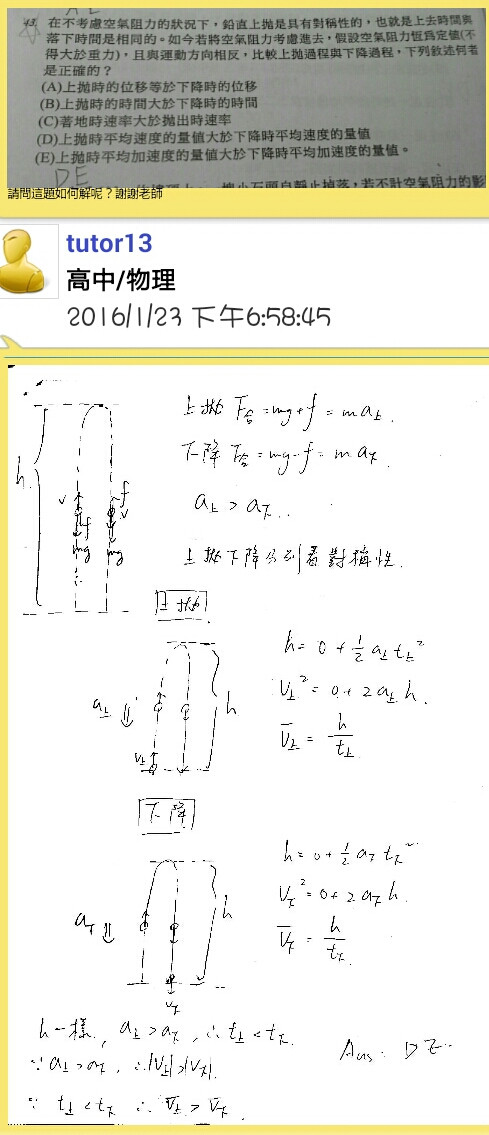 43. 在不考慮空氣阻力的狀況下，鉛直上拋是具有對稱性的，也就是上去時間與
落下時間是相同的。如今若將空氣阻力考慮進去，假設空氣阻力恆為定值(不
得大於重力)，且與運動方向相反，比較上拋過程與下降過程，下列敘述何者
是正確的？
(A)上拋時的位移等於下降時的位移
(B)上拋時的時間大於下降時的時間
(C)著地時速率大於拋出時速率
(D)上拋時平均速度的量值大於下降時平均速度的量值
(E)上拋時平均加速度的量值大於下降時平均加速度的量值。
DE
一塊小石頭自靜止掉落，若不計空氣阻力的影
請問這題如何解呢？謝謝老師
tutor13
高中/物理
2016/1/23 下午6:58:45
上拋 F合 = mg + f = m a上.
下降 F合 = mg - f = m a下.
a上 > a下.
上拋下降分別看對稱性.
h
v
f
mg
f
v
mg
上拋
a上
h
v上
h = 0 + 1/2 a上 t上²
V上² = 0 + 2 a上 h.
V̄上 = h/t上
下降
a下
h
v下
h = 0 + 1/2 a下 t下²
V下² = 0 + 2 a下 h.
V̄下 = h/t下
h一樣, a上 > a下, ∴ t上 < t下.
∵ a上 > a下, ∴ |V上| > |V下|.
∵ t上 < t下 ∴ V̄上 > V̄下.
Ans: DE